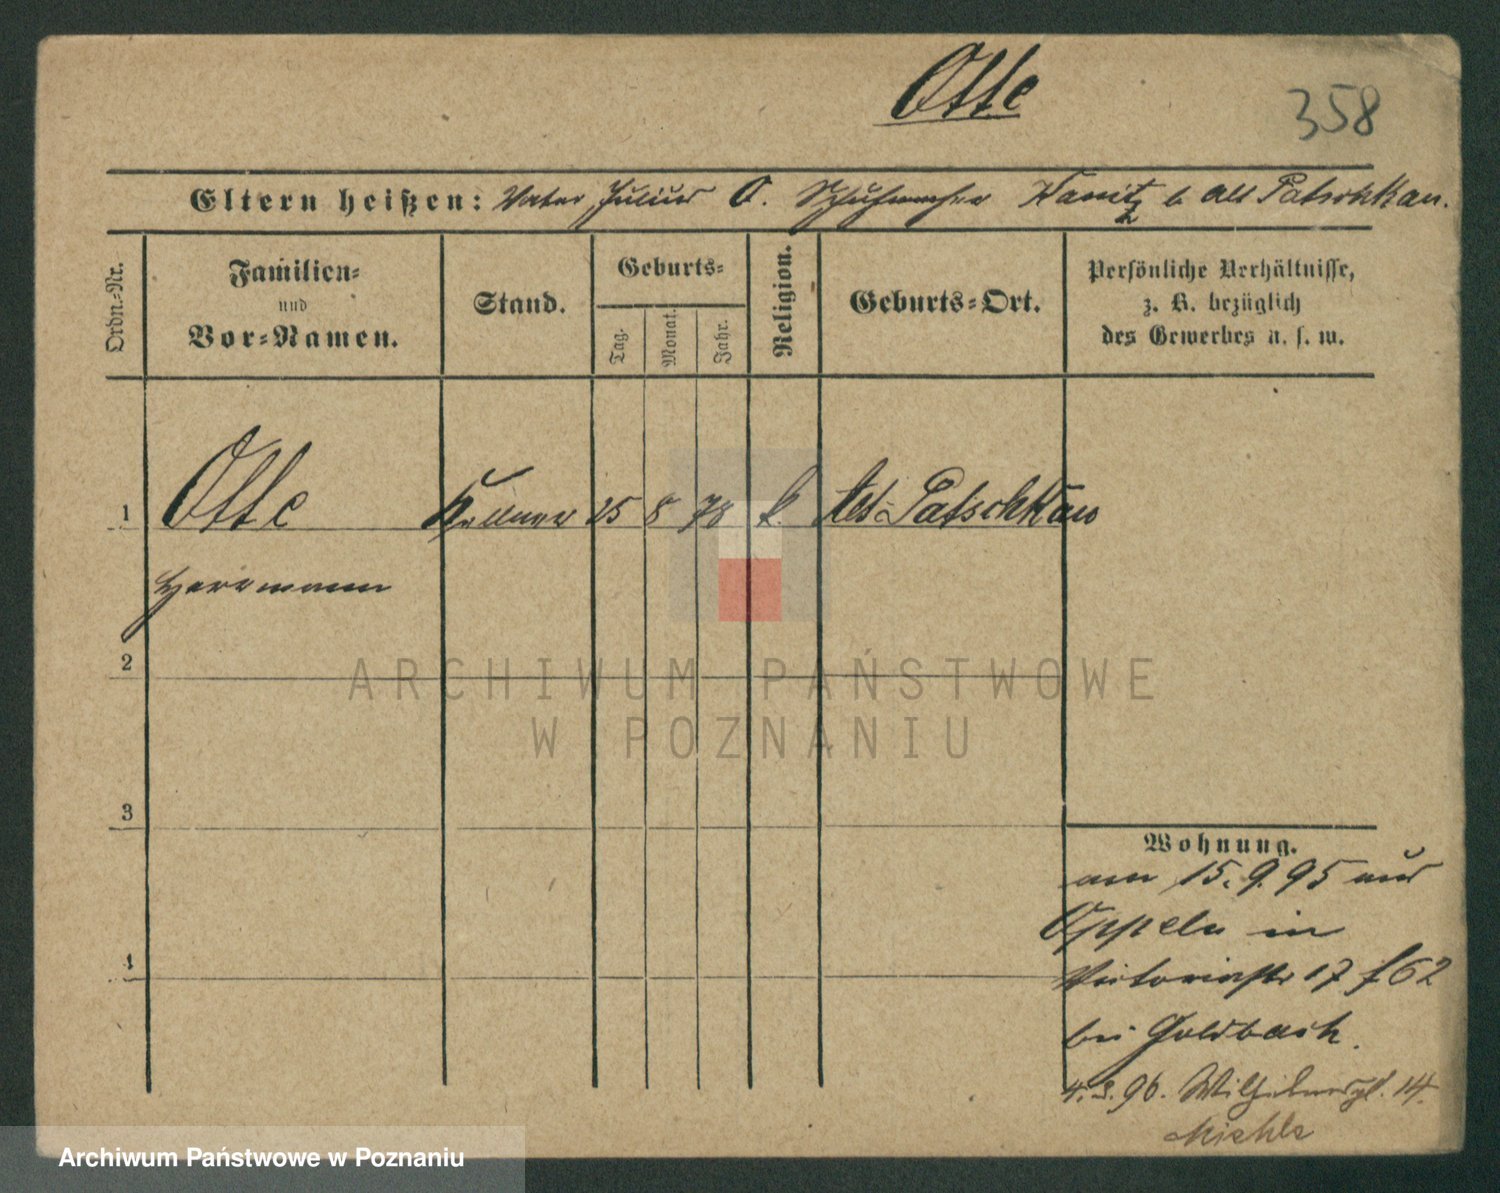 Otte
358
Eltern heißen: Vater Julius O. Schuhmacher Kanitz b Alt Patschkau.
Ordn.-Nr.
Familien-
und
Vor-Namen.
Stand.
Geburts-
Tag.
Monat.
Jahr.
Religion.
Geburts-Ort.
Persönliche Verhältnisse,
z. B. bezüglich
des Gewerbes u. s. w.
1 Otte Kellner 25 8 78 k. Alt-Patschkau
Herrmann
2
3
4
Wohnung.
am 15. 9. 95 aus
Oppeln in
Victoriastr 17 f 62
bei Goldbach.
4. 3. 96. Wilhelmspl. 14.
Miehle
ARCHIWUM PAŃSTWOWE
W POZNANIU
Archiwum Państwowe w Poznaniu